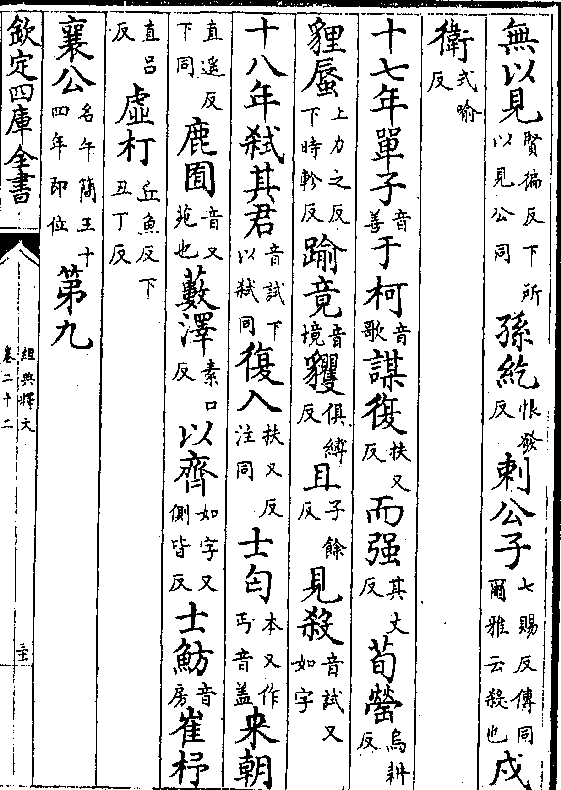 無以見賢徧反下所以見公同孫紇恨發反刺公子七賜反傳同爾雅云殺也戍
衛式喻反
十七年單子音善于柯音歌謀復扶又反而强其丈反荀罃烏耕反
貍蜃上力之反下時軫反踰竟音境貜俱縛反且子餘反見殺音試又如字
十八年弑其君音試下以弑同復入扶又反注同士匄本又作丐音蓋来朝
直遥反下同鹿囿音又苑也藪澤素口反以齊如字又側皆反士魴音房崔杼
直吕反虚朾丘魚反下丑丁反
襄公名午簡王十四年即位第九
欽定四庫全書
經典釋文
卷二十二